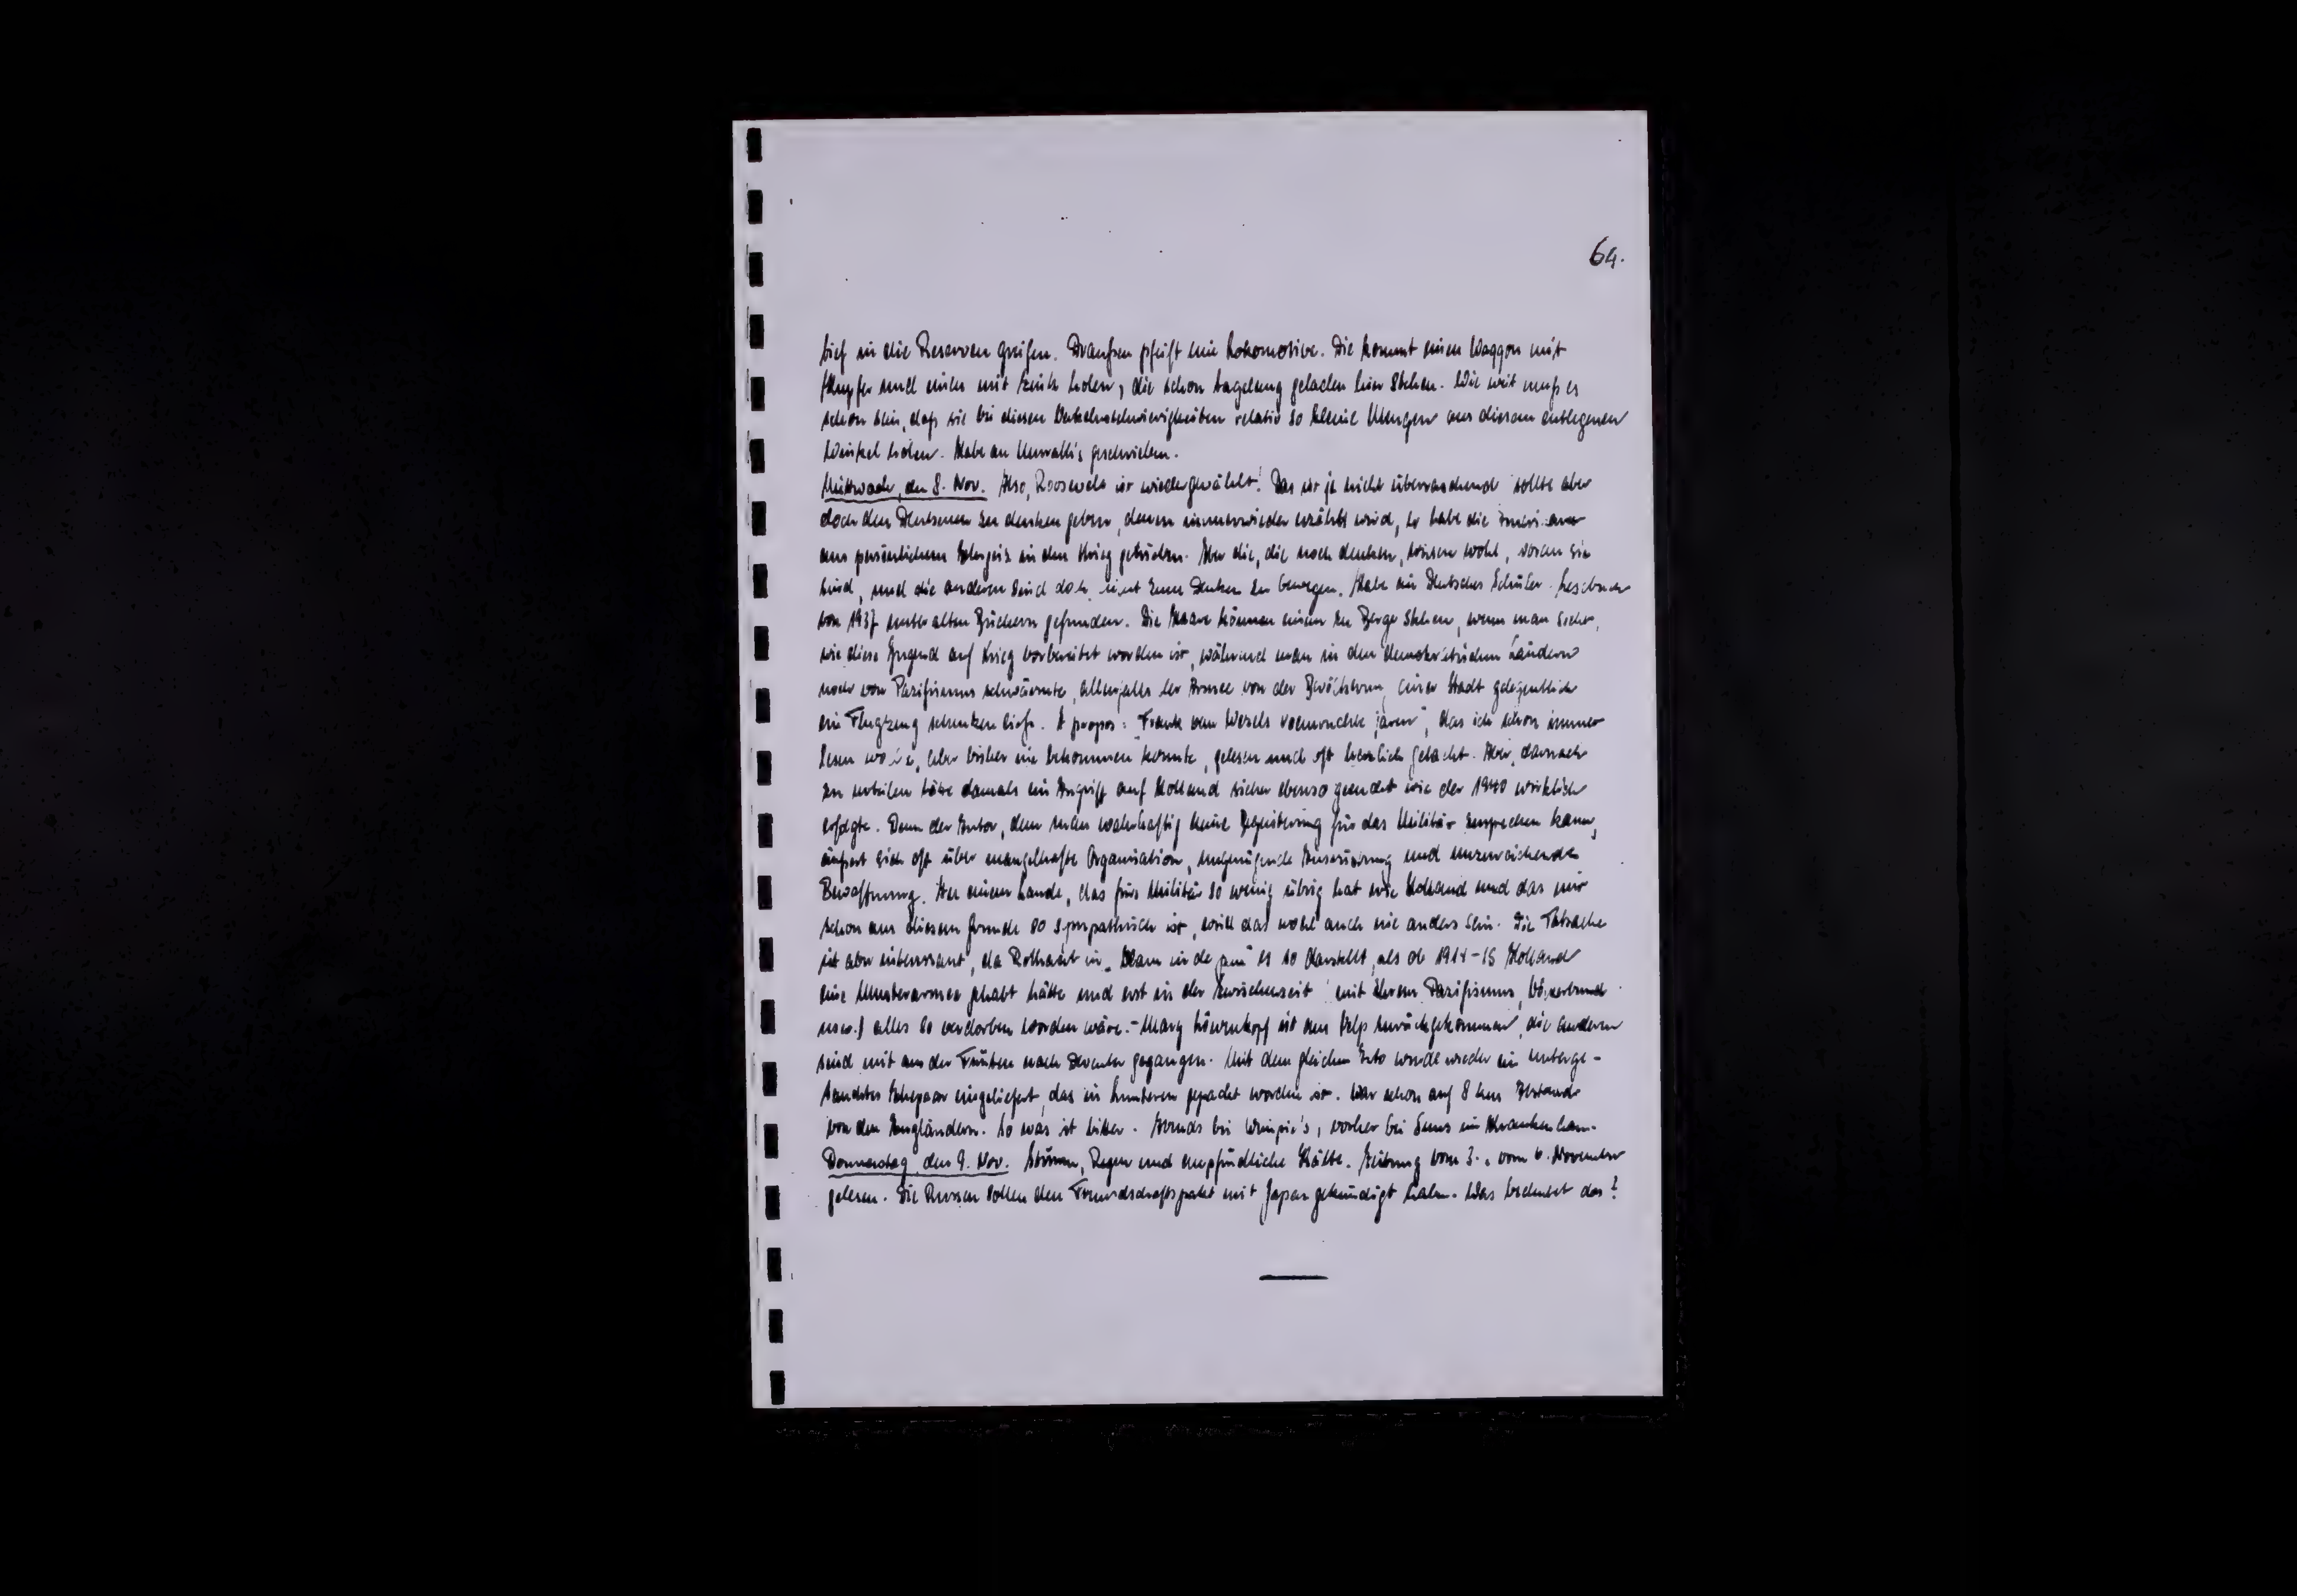 64.
tief in die Reserven greifen. Draußen pfeift eine Lokomotive. Die kommt einen Waggon mit
Kupfer und einen mit Zink holen, die schon tagelang geladen hier stehen. Wie weit muß es
schon sein, daß sie bei diesen Verkehrsschwierigkeiten relativ so kleine Mengen aus diesem entlegenen
Winkel holen. Habe an geschrieben.
Mittwoch, den 8. Nov. Also, Roosevelt ist wiedergewählt! Das ist ja nicht überraschend sollte aber
doch den Deutschen zu denken geben, denen immerwieder erzählt wird, er habe die
aus persönlichem Ehrgeiz in den Krieg getrieben. Aber die, die noch denken, wissen wohl, woran sie
sind, und die anderen sind doch nicht zum Denken zu bewegen. Habe ein Deutsches Schüler-Lesebuch
von 1937 unter alten Büchern gefunden. Die Haare können einem zu Berge stehen, wenn man sieht,
wie diese Jugend auf Krieg vorbereitet worden ist, während man in den demokratischen Ländern
noch von Pazifismus schwärmte, allenfalls der Armee von der Bevölkerung einer Stadt gelegentlich
ein Flugzeug schenken ließ. A propos: "Frank van Wesels roemruchte jaren", das ich schon immer
lesen wollte, aber bisher nie bekommen konnte, gelesen und oft herzlich gelacht. Aber, darnach
zu urteilen hätte damals ein Angriff auf Holland sicher ebenso geendet wie der 1940 wirklich
erfolgte. Denn der Autor, dem man wahrhaftig keine Begeisterung für das Militär zusprechen kann,
äußert sich oft über mangelhafte Organisation, ungenügende Ausrüstung und unzureichende
Bewaffnung. In einem Lande, das fürs Militär so wenig übrig hat wie Holland und das mir
schon aus diesem Grunde so sympathisch ist, will das wohl auch nie anders sein. Die Tatsache
ist aber interessant, da in es so darstellt, als ob 1914-18 Holland
eine Musterarmee gehabt hätte und erst in der Zwischenzeit mit ihrem Pazifismus, Völkerbund
usw.) alles so verdorben worden wäre. - Mary Löwenkopf ist aus Velp zurückgekommen, die anderen
sind mit aus der nach Deventer gegangen. Mit dem gleichen Auto wurde wieder ein unterge-
tauchtes Ehepaar eingeliefert, das in Lunteren gepackt worden ist. War schon auf 8 km Abstand
von den Engländern. So was ist bitter. Abends bei, vorher bei im Krankenhaus.
Donnerstag, den 9. Nov. Sturm, Regen und empfindliche Kälte. Zeitung vom 3. u. vom 6. November
gelesen. Die Russen sollen den Freundschaftspakt mit Japan gekündigt haben. Was bedeutet das?